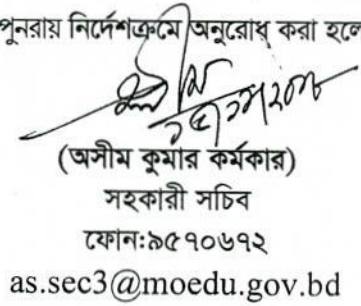 পুনরায় নির্দেশক্রমে অনুরোধ করা হলে
(অসীম কুমার কর্মকার)
সহকারী সচিব
ফোন:৯৫৭০৬৭২
as.sec3@moedu.gov.bd